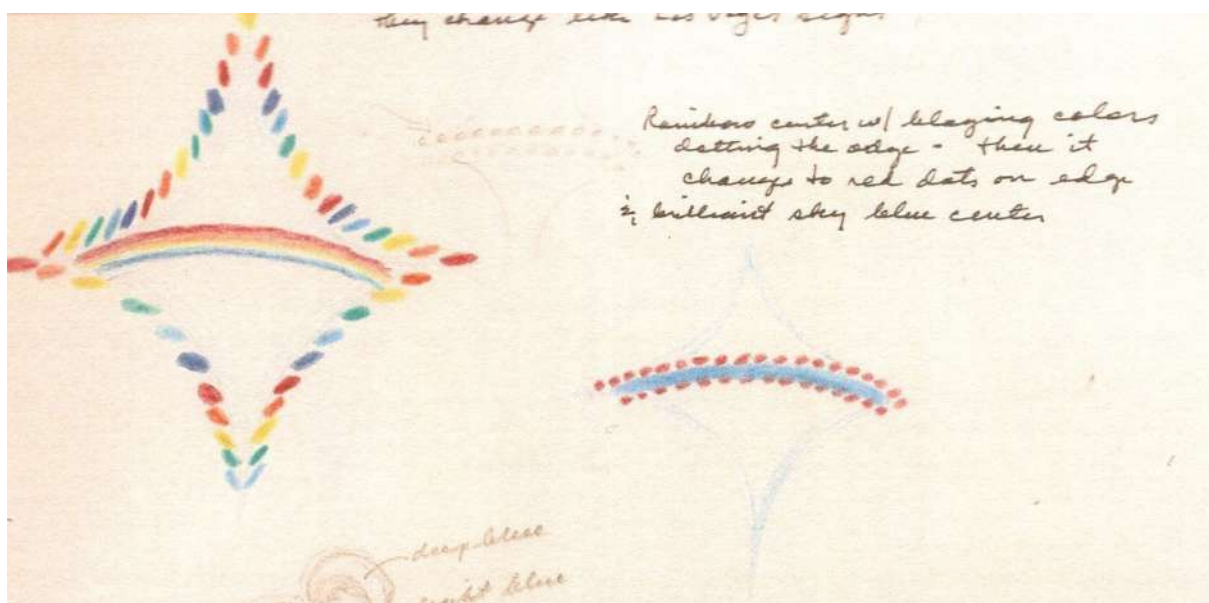 they change like Las Vegas signs
Rainbow center w/ blazing colors
dotting the edge - then it
changes to red dots on edge
& brilliant sky blue center
deep blue
light blue